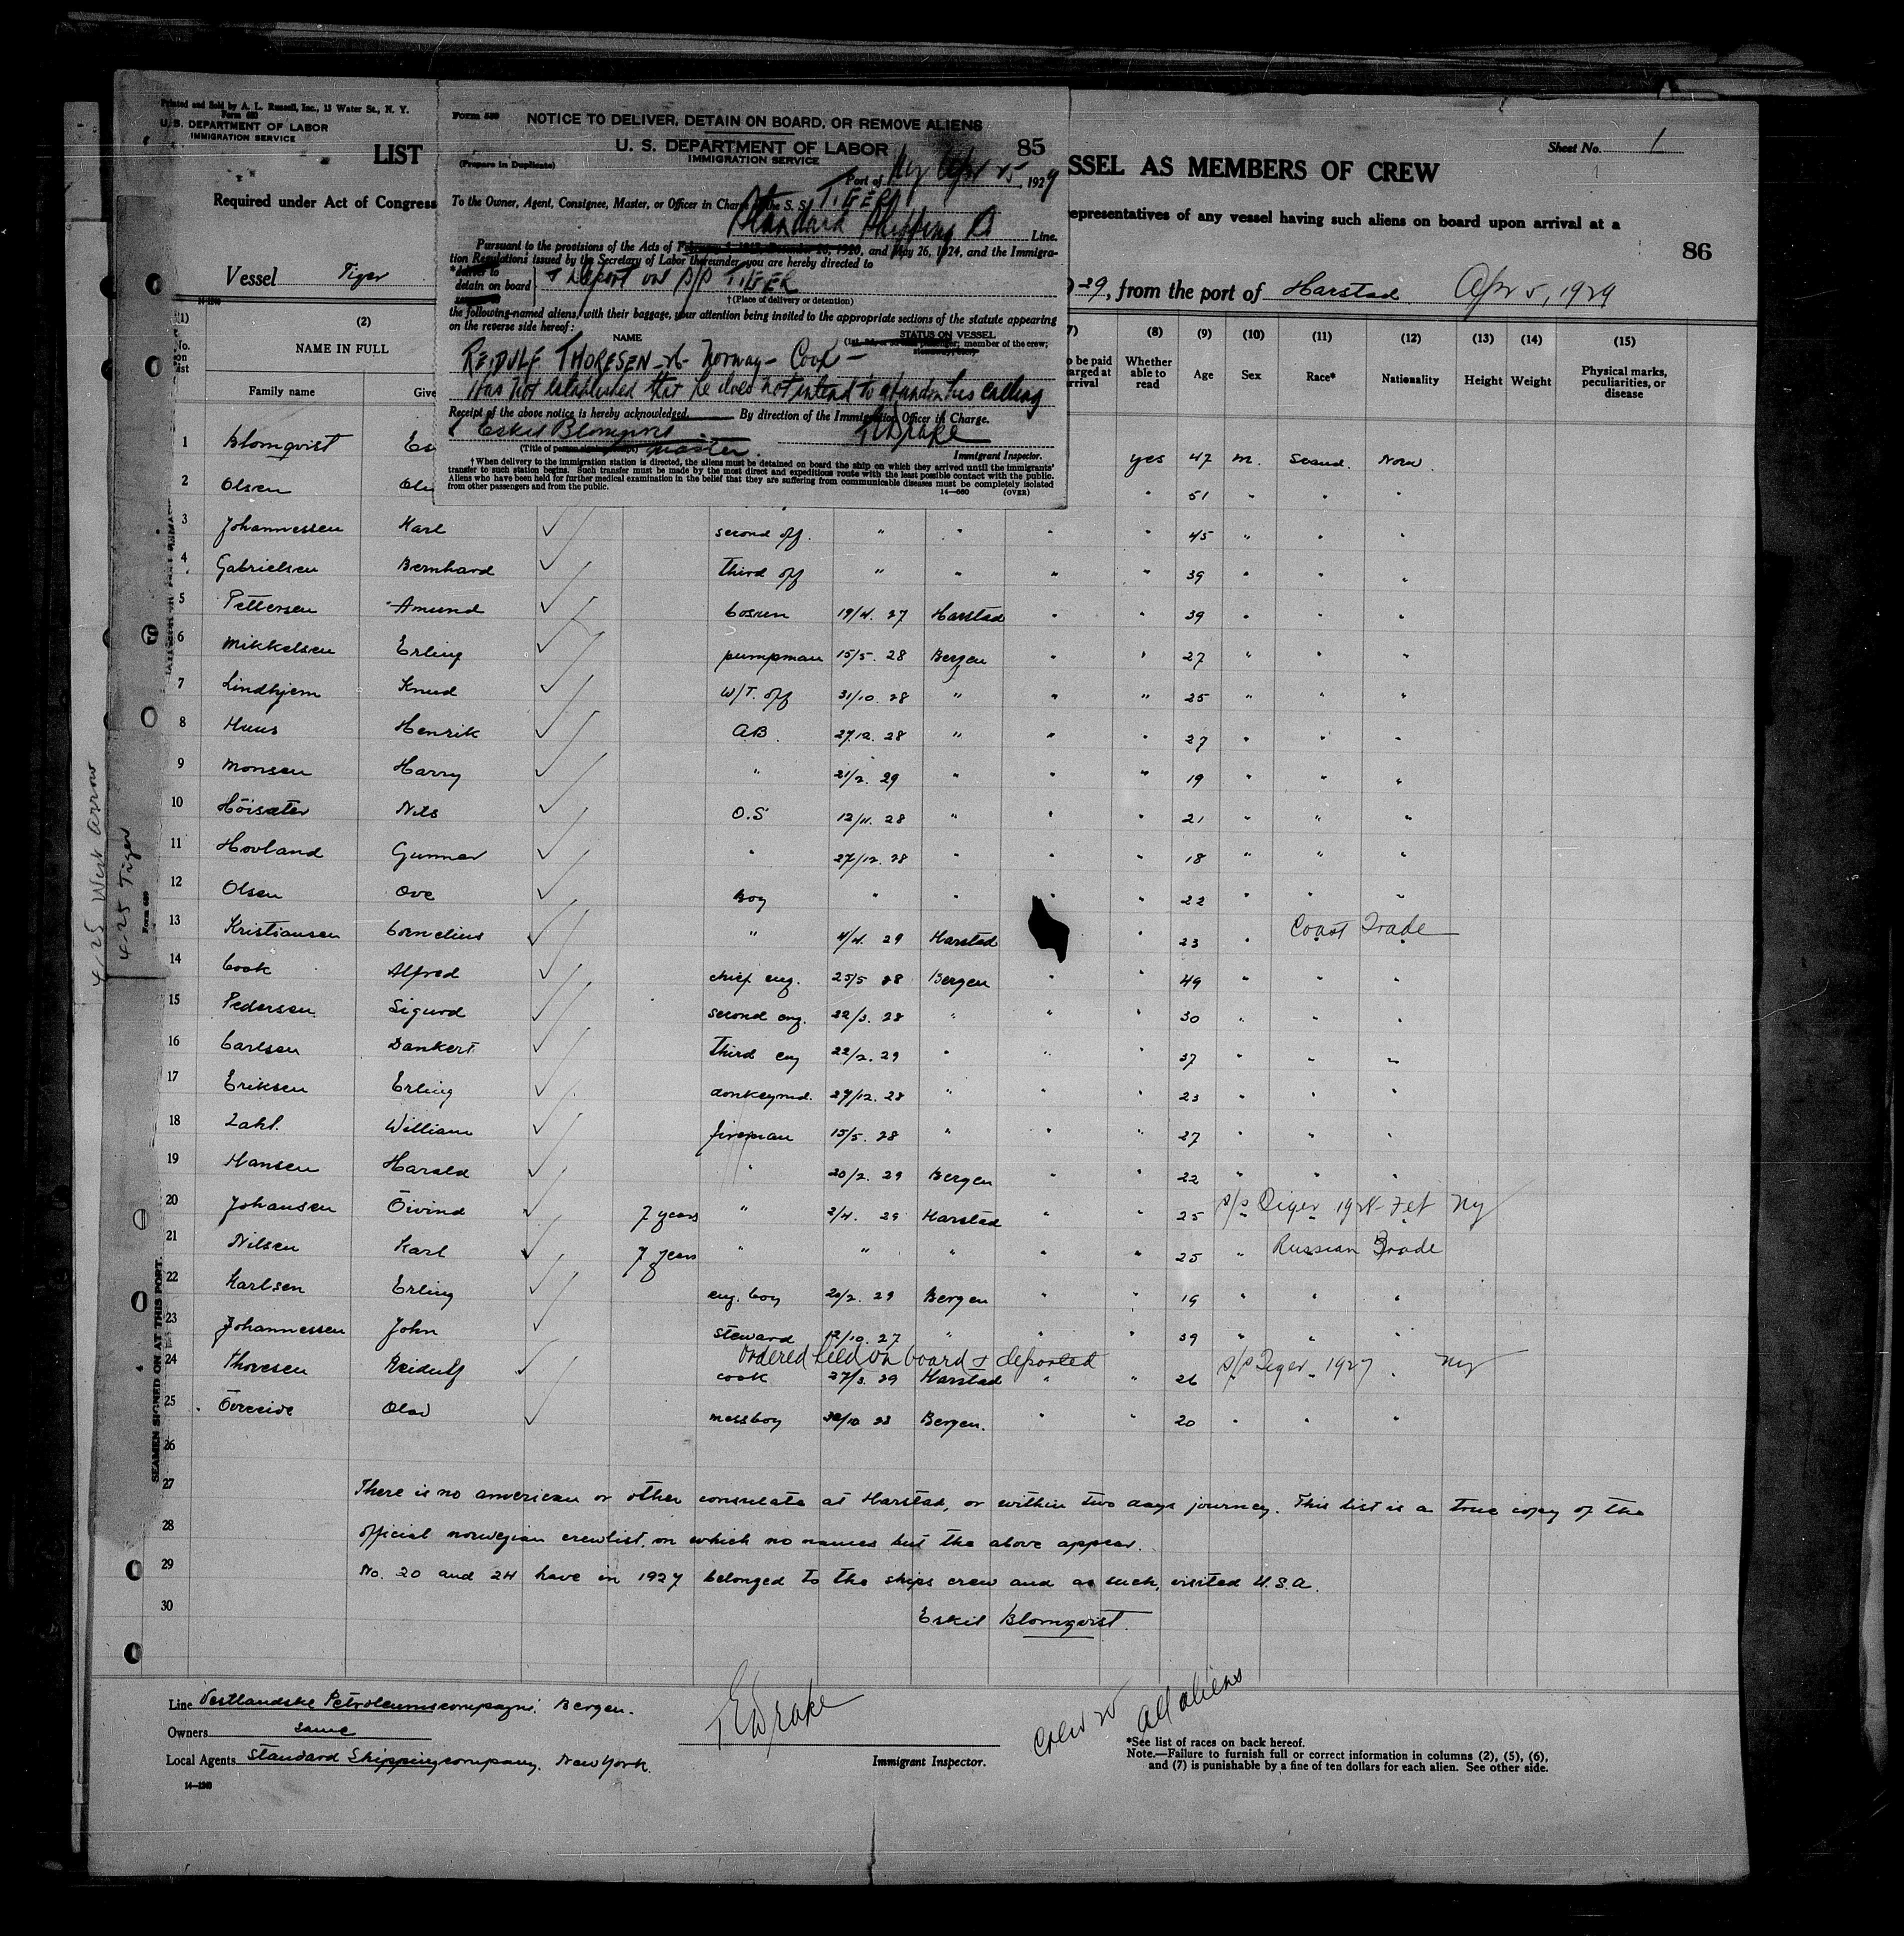 Printed and Sold by A. L. Russell, Inc., 13 Water St., N. Y.
Form 680
U. S. DEPARTMENT OF LABOR
IMMIGRATION SERVICE
LIST
Required under Act of Congress
Vessel Tiger
Form 630
NOTICE TO DELIVER, DETAIN ON BOARD, OR REMOVE ALIENS
U. S. DEPARTMENT OF LABOR
IMMIGRATION SERVICE
85
(Prepare in Duplicate)
Port of Ny Apr 25, 1929
To the Owner, Agent, Consignee, Master, or Officer in Charge of the S. S. TIGER
Standard Shipping Co Line.
Pursuant to the provisions of the Acts of February 5, 1917, December 26, 1920, and May 26, 1924, and the Immigra-
tion Regulations issued by the Secretary of Labor thereunder, you are hereby directed to
*deliver to
detain on board
& Deport on S/S TIGER
†(Place of delivery or detention)
the following-named aliens, with their baggage, your attention being invited to the appropriate sections of the statute appearing
on the reverse side hereof:
NAME
STATUS ON VESSEL
member of the crew;
REIDULF THORESEN Norway - Cook -
Has not established that he does not intend to abandon his calling
Receipt of the above notice is hereby acknowledged. By direction of the Immigration Officer in Charge.
Eskil Blomqvist
Master.
Drake
Immigrant Inspector.
†When delivery to the immigration station is directed, the aliens must be detained on board the ship on which they arrived until the immigrants'
transfer to such station begins. Such transfer must be made by the most direct and expeditious route with the least possible contact with the public.
Aliens who have been held for further medical examination in the belief that they are suffering from communicable diseases must be completely isolated
from other passengers and from the public.
14—660 (OVER)
Sheet No. 1
SSEL AS MEMBERS OF CREW
epresentatives of any vessel having such aliens on board upon arrival at a
86
29, from the port of Harstad Apr 5, 1929
(1) (2) (8) (9) (10) (11) (12) (13) (14) (15)
NAME IN FULL
Family name
Whether able to read Age Sex Race* Nationality Height Weight Physical marks, peculiarities, or disease
1 Blomqvist Es yes 47 m. Scand. Norw.
2 Olsen " 51 " " "
3 Johannessen Karl second off. " " " " 45 " " "
4 Gabrielsen Bernhard third off " " " " 39 " " "
5 Pettersen Amund bosun 19/4. 27 Harstad " " 39 " " "
6 Mikkelsen Erling pumpman 15/5. 28 Bergen " " 27 " " "
7 Lindhjem Knud W/T. off 31/10. 28 " " " 25 " " "
8 Huus Henrik AB 27.12. 28 " " " 27 " " "
9 Monsen Harry " 21/2. 29 " " " 19 " " "
10 Höisæter Nils O.S 12/11. 28 " " " 21 " " "
11 Hovland Gunnar " 27/12. 28 " " " 18 " " "
12 Olsen Ove Boy " " " " 22 " " "
13 Kristiansen Cornelius " 4/4. 29 Harstad " 23 " Coast Trade
14 Cook Alfred chief eng. 25/5 28 Bergen " " 49 " " "
15 Pedersen Sigurd second eng. 22/3. 28 " " " 30 " " "
16 Carlsen Dankert third eng 22/2. 29 " " " 37 " " "
17 Eriksen Erling donkeymd. 27/12. 28 " " " 23 " " "
18 Zahl. William fireman 15/5. 28 " " " 27 " " "
19 Hansen Harald " 20/2. 29 Bergen " " 22 " " "
20 Johansen Öivind 7 years " 2/4. 29 Harstad " " 25 S/S Tiger Ny
21 Nilsen Karl 7 years " " " " " 25 " Russian Trade
22 Karlsen Erling eng. boy 20/2. 29 Bergen " " 19 " " "
23 Johannessen John steward 12/10. 27 " " " 39 " " "
Ordered held on board & deported
24 Thoresen Reidulf cook 27/3. 29 Harstad " " 26 S/S Tiger 1927 Ny
25 Olav messboy Bergen. " " 20 " " "
26
27 There is no american or other consulate at Harstad, or within two days journey. This list is a true copy of the
28 official norwegian crewlist, on which no names but the above appear.
29 No. 20 and 24 have in 1927 belonged to the ships crew and as such, visited U.S.A.
30 Eskil Blomqvist.
SEAMEN SIGNED ON AT THIS PORT.
4-25 West Arrow
4-25 Tiger
Form 689
Line Vestlandske Petroleumscompagni. Bergen.
Owners same
Local Agents Standard Shippingcompany. New York.
14—1240
Drake
Immigrant Inspector.
Crew all aliens
*See list of races on back hereof.
Note.—Failure to furnish full or correct information in columns (2), (5), (6),
and (7) is punishable by a fine of ten dollars for each alien. See other side.